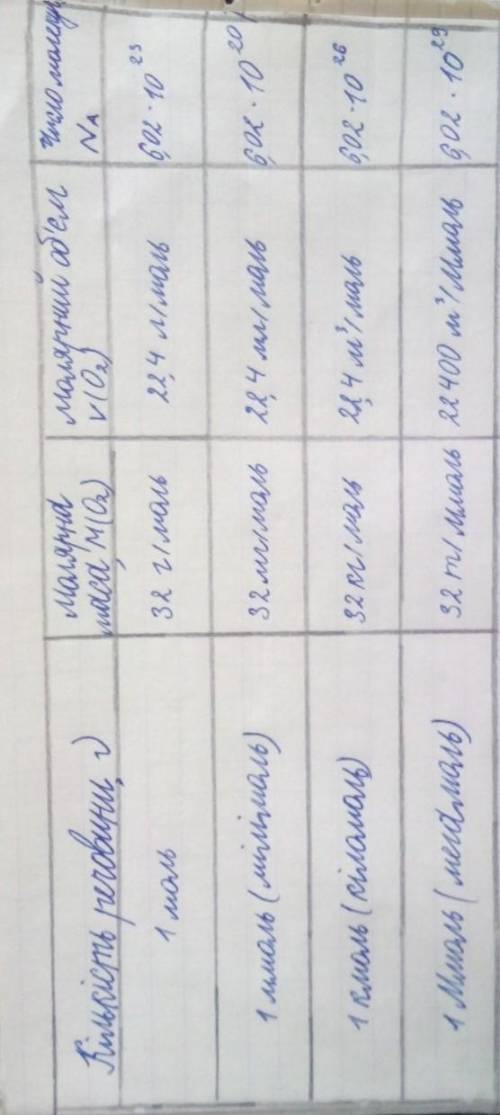 Кількість речовини, ν
Молярна маса, M(O₂)
Молярний об'єм V(O₂)
Число молекул N_A
1 моль
32 г/моль
22,4 л/моль
6,02 · 10²³
1 ммоль (мілімоль)
32 мг/моль
22,4 мл/моль
6,02 · 10²⁰
1 кмоль (кіломоль)
32 кг/моль
22,4 м³/моль
6,02 · 10²⁶
1 Ммоль (мегамоль)
32 т/Ммоль
22400 м³/Ммоль
6,02 · 10²⁹